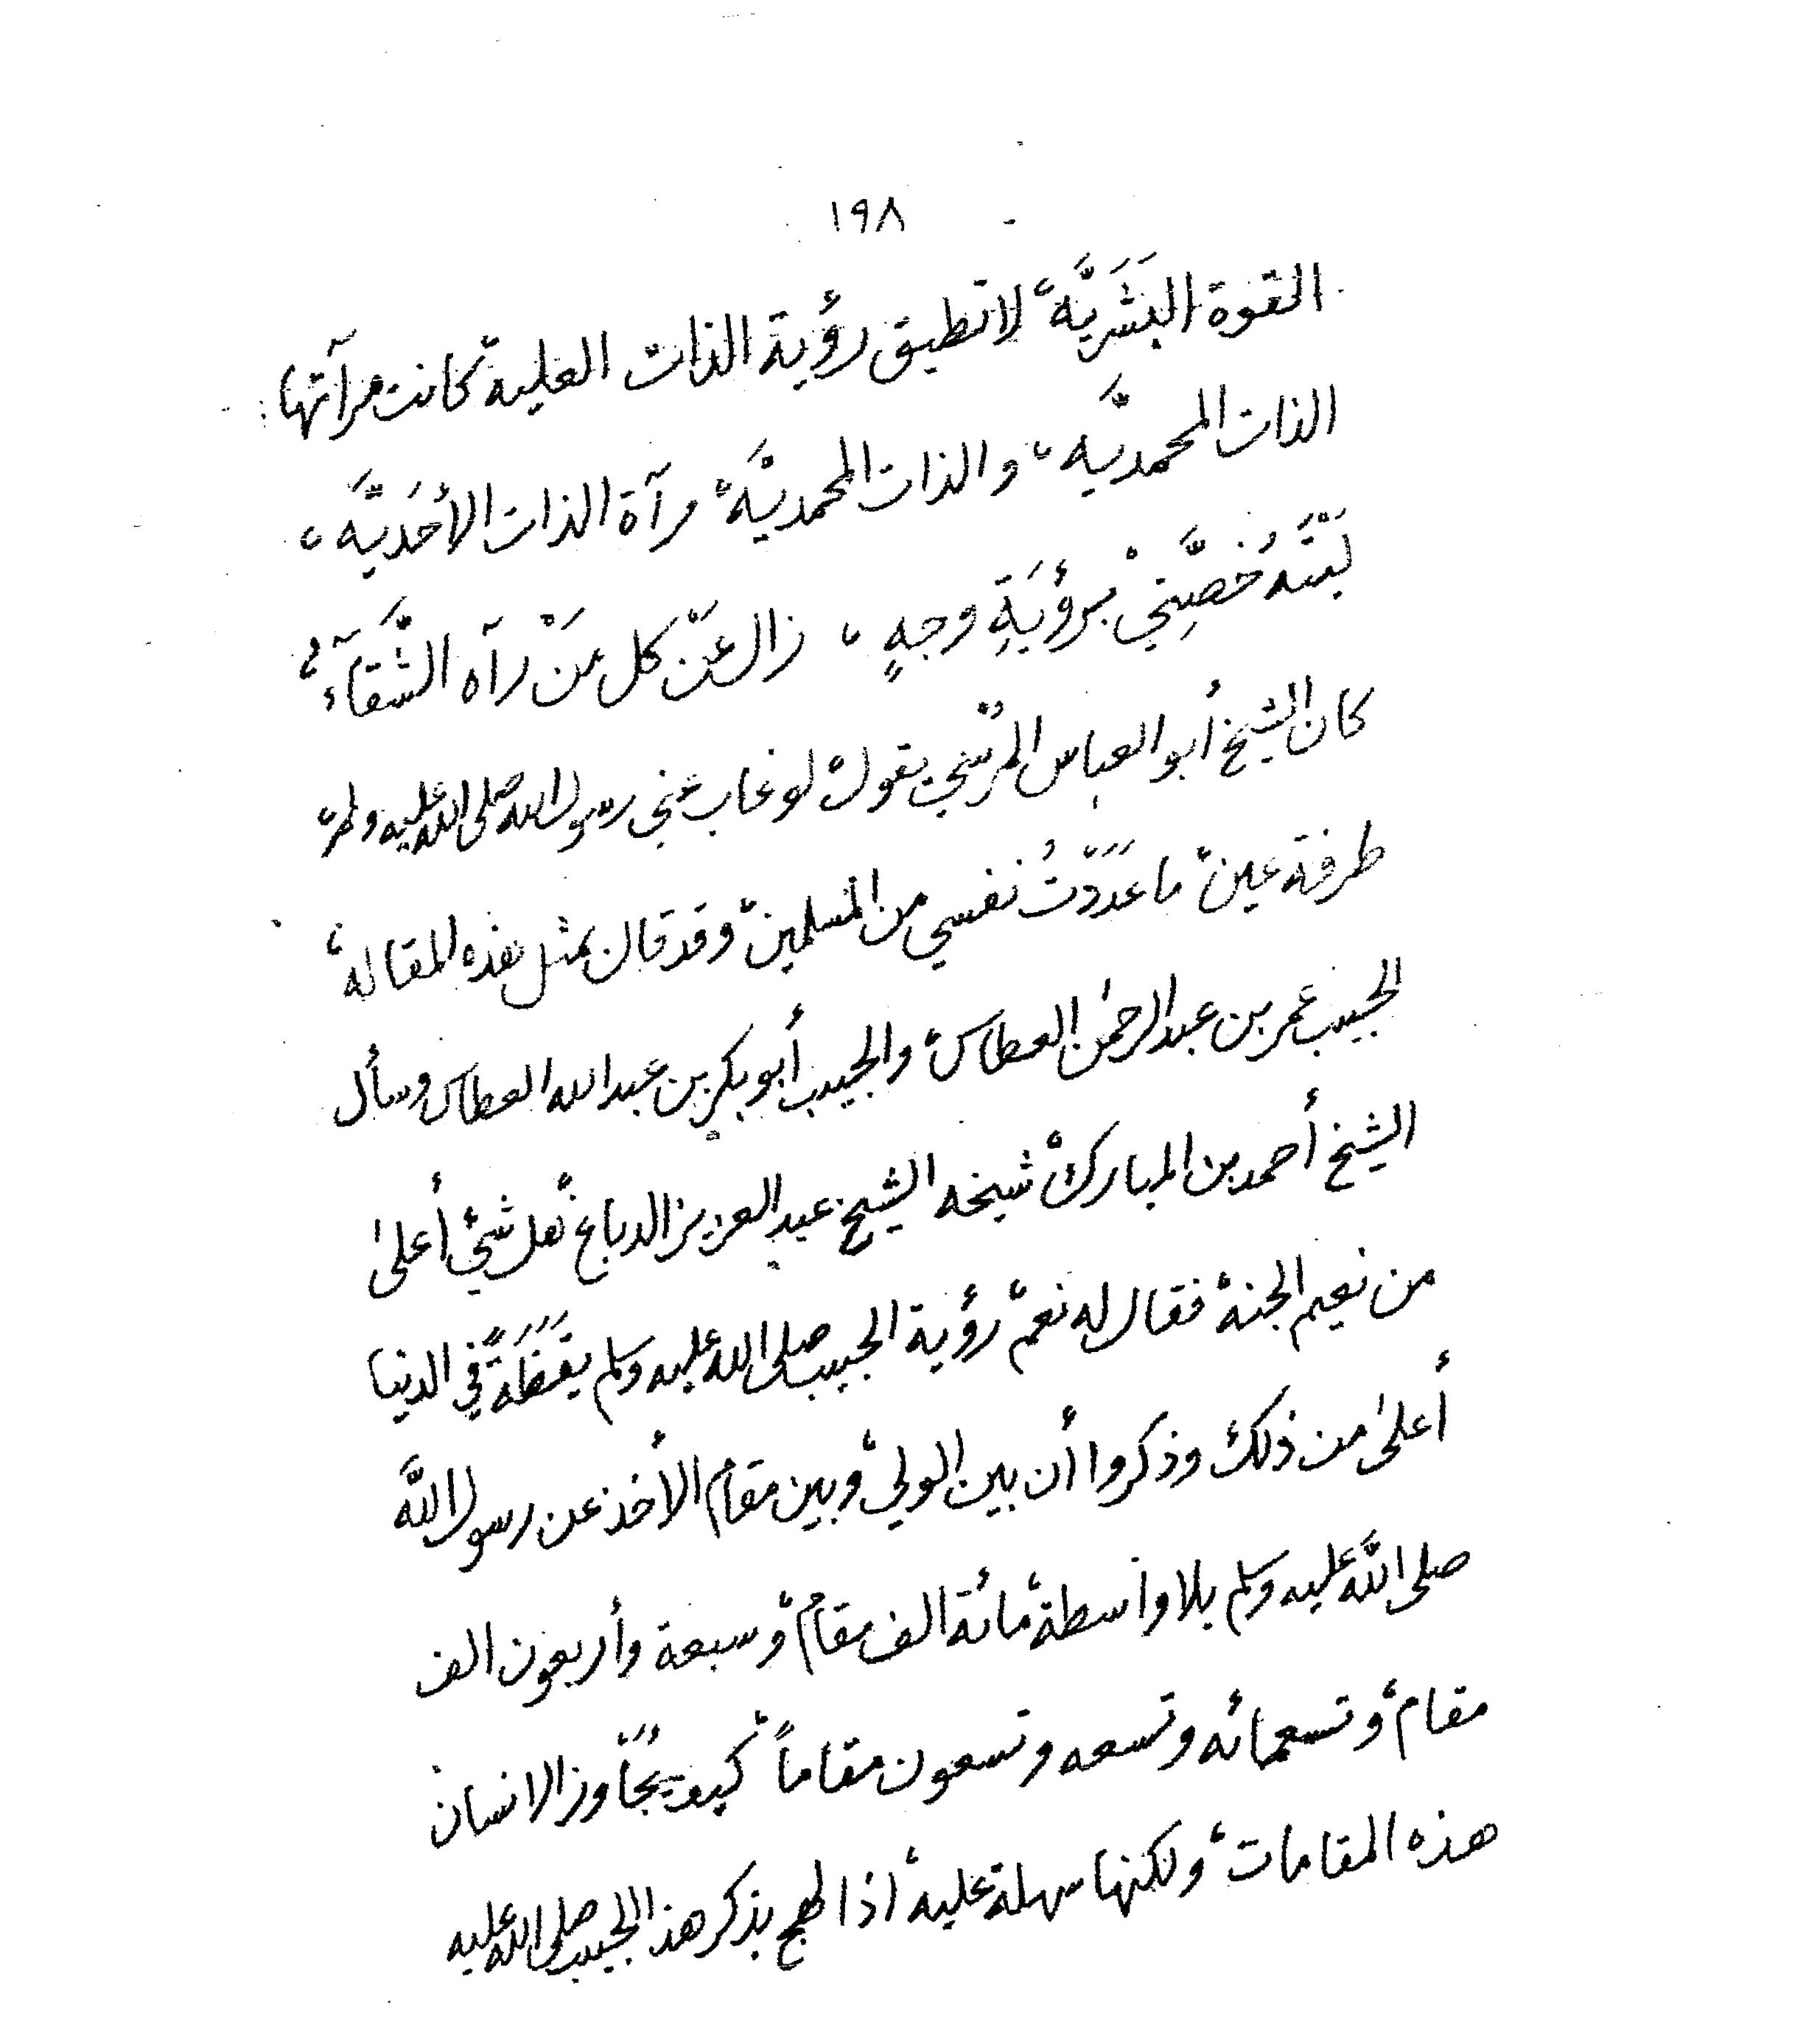 ١٩٨
القوة البَشَريَّة، لا تطيق رؤية الذات العلية، كانت مرآتها
الذات المحمديَّه، والذات المحمديَّة، مرآة الذات الأحَديَّه،
لَيْتَهُ خُصَّنِيْ برؤيَةِ وجهٍ، زال عَنْ كل مَنْ رآه الشَّقآءُ،
كان الشيخ أبو العباس المُرْسي يقول، لو غاب عني رسول الله صلى الله عليه وسلم،
طرفة عين، ما عَدَدْتُ نفسي من المسلمين، وقد قال بمثل هذه المقاله،
الحبيب عمر بن عبد الرحمٰن العطاس، والحبيب أبو بكر بن عبد الله العطاس وسأل
الشيخ أحمد بن المبارك، شيخه الشيخ عبد العزيز الدباغ، هل شيء أعلىٰ
من نعيم الجنة، فقال له نعم، رؤية الحبيب صلى الله عليه وسلم يَقَظَةً في الدنيا
أعلىٰ من ذلك، وذكروا أن بين الولي، وبين مقام الأخذ عن رسول الله
صلى اللَّه عليه وسلم بلا واسطة، مائة الف مقام، وسبعة وأربعون الف
مقام، وتسعمائه وتسعه وتسعون مقاماً، كيف يُجَاوز الانسان
هذه المقامات، ولكنها سهلة عليه، اذا لهج بذكر هذا الحبيب صلى الله عليه